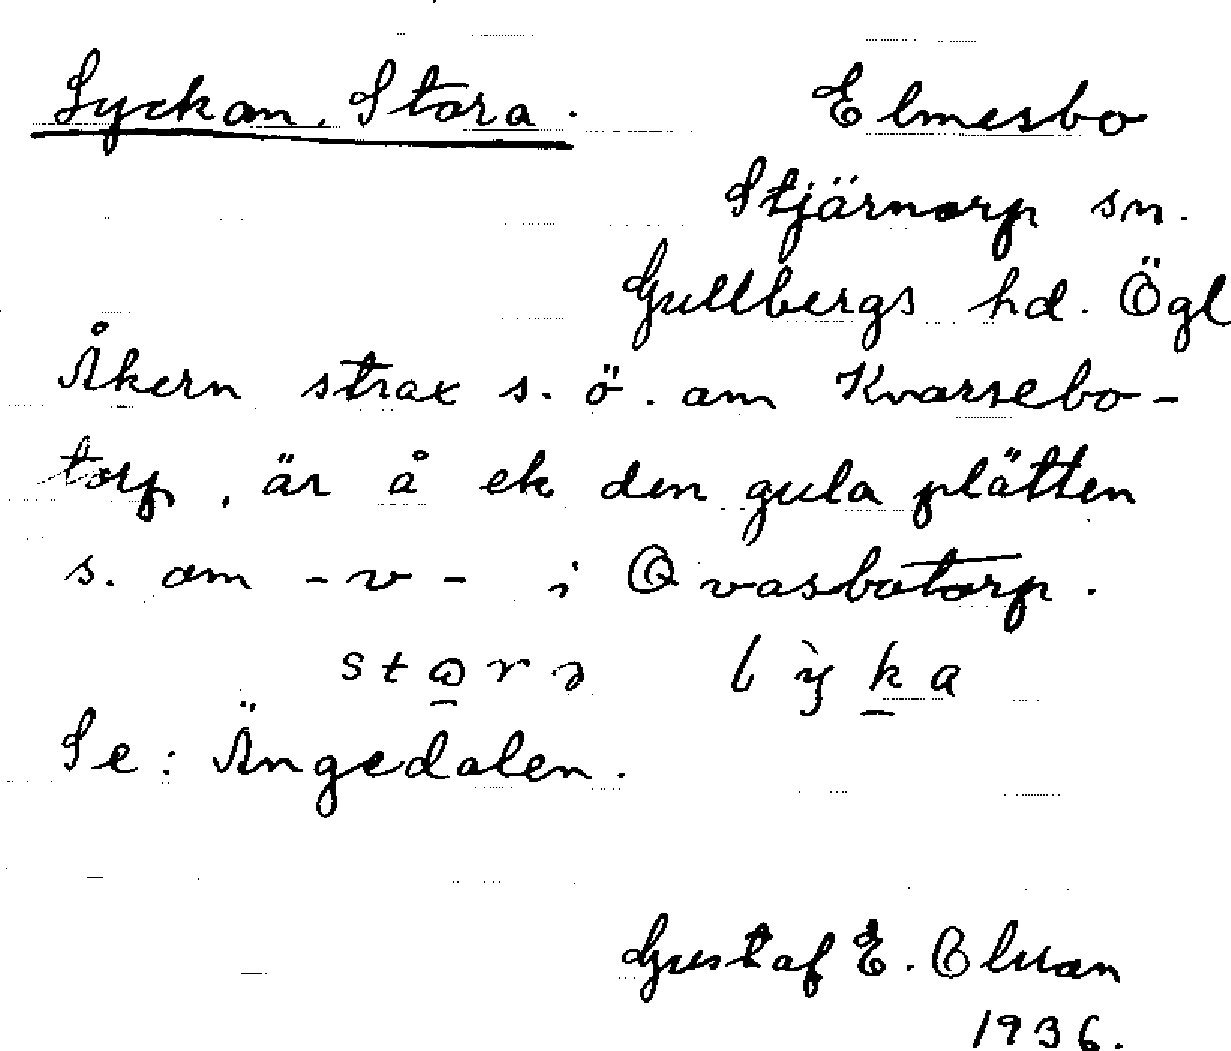 Lyckan, Stora.
Elmesbo
Stjärnorp sn.
Gullbergs hd. Ögl
Åkern strax s. ö. om Kvarsebo-
torp, är å ek den gula plätten
s. om - v - i Qvasbotorp.
Se: Ängedalen.
Gustaf E.
1936.